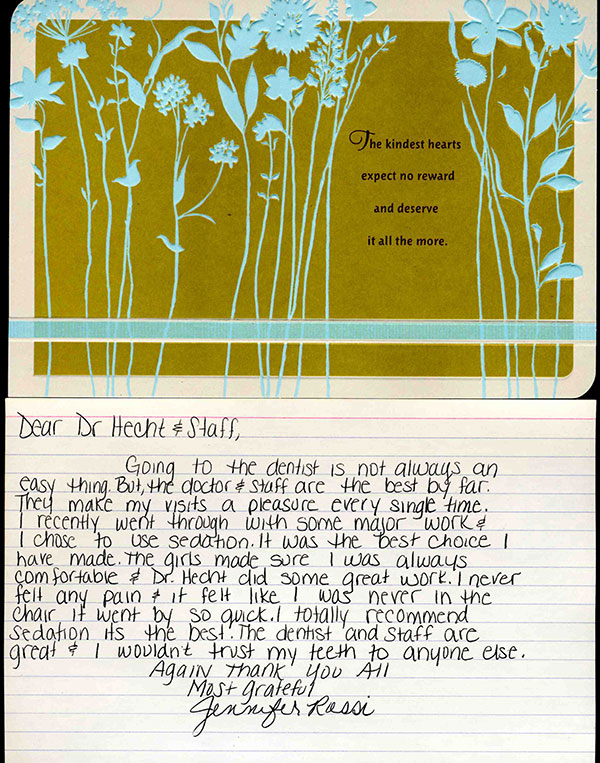 The kindest hearts
expect no reward
and deserve
it all the more.
Dear Dr Hecht & Staff,
Going to the dentist is not always an
easy thing. But, the doctor & staff are the best by far.
They make my visits a pleasure every single time.
I recently went through with some major work &
I chose to use sedation. It was the best choice I
have made. The girls made sure I was always
comfortable & Dr. Hecht did some great work. I never
felt any pain & it felt like I was never in the
chair it went by so quick. I totally recommend
sedation its the best. The dentist and staff are
great & I wouldn't trust my teeth to anyone else.
Again Thank You All
Most grateful
Jennifer Rossi